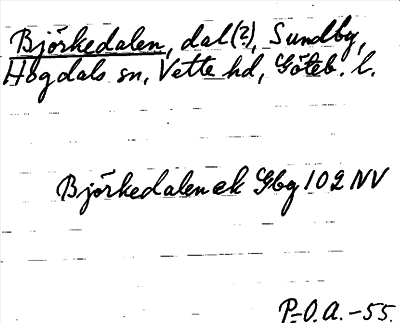 Björkedalen, dal(?), Sundby,
Hogdals sn, Vette hd, Göteb. l.
Björkedalen ek Gbg 102 NV
P-O.A. -55.